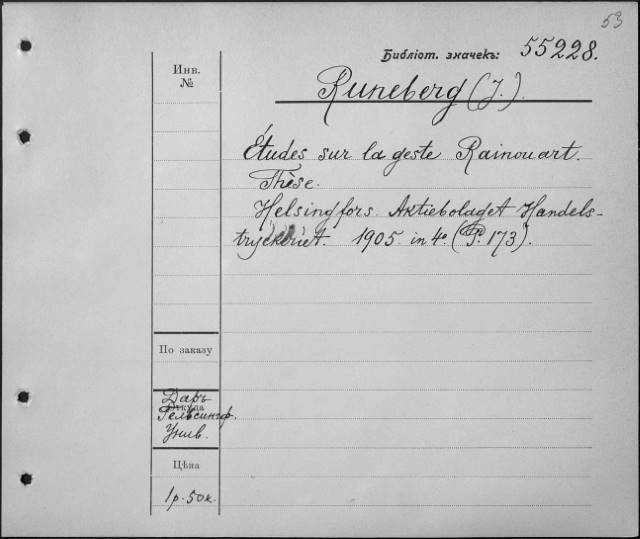 53
Библіот. значекъ: 55228.
Инв.
№
Runeberg (J.).
Études sur la geste Rainouart.
Thèse.
Helsingfors. Aktiebolaget Handels-
tryckeriet. 1905. in 4º. (P. 173).
По заказу
Даръ
Откуда
Гельсингф.
Унив.
Цѣна
1 р. 50 к.